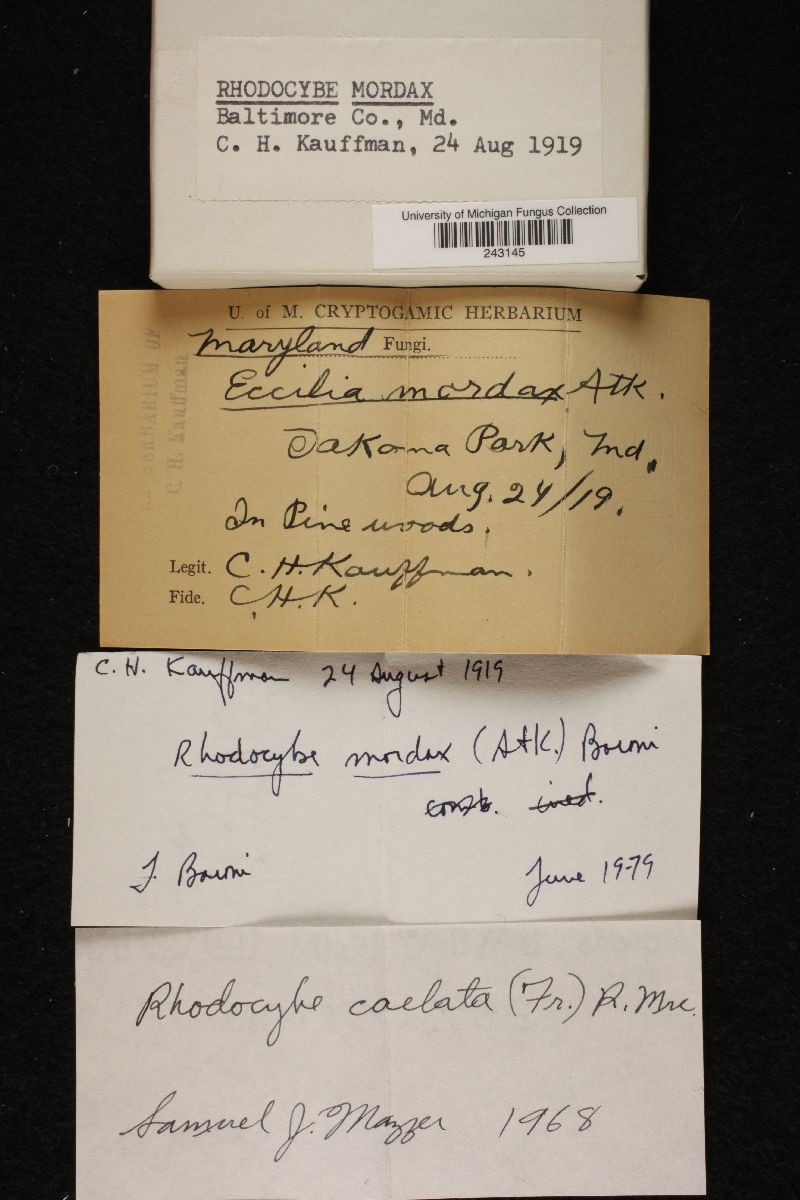 RHODOCYBE MORDAX
Baltimore Co., Md.
C. H. Kauffman, 24 Aug 1919
University of Michigan Fungus Collection
243145
U. of M. CRYPTOGAMIC HERBARIUM
Maryland Fungi.
Eccilia mordax Atk.
Takoma Park, Md.
Aug. 24/19.
In Pine woods.
Legit. C. H. Kauffman.
Fide. C. H. K.
HERBARIUM OF
C. H. Kauffman
C. H. Kauffman 24 August 1919
Rhodocybe mordax (Atk.) Baroni
comb. ined.
T. Baroni June 1979
Rhodocybe caelata (Fr.) R. Mre.
Samuel J. Mazzer 1968